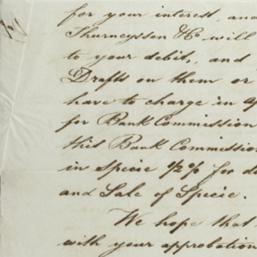 for your interest, and
Thurneyssen & Co will
to your debit, and
Drafts on them or
have to charge in
for Bank Commission
this Bank Commission
in specie ½ % for
and Sale of Specie.
We hope that
with your approbation